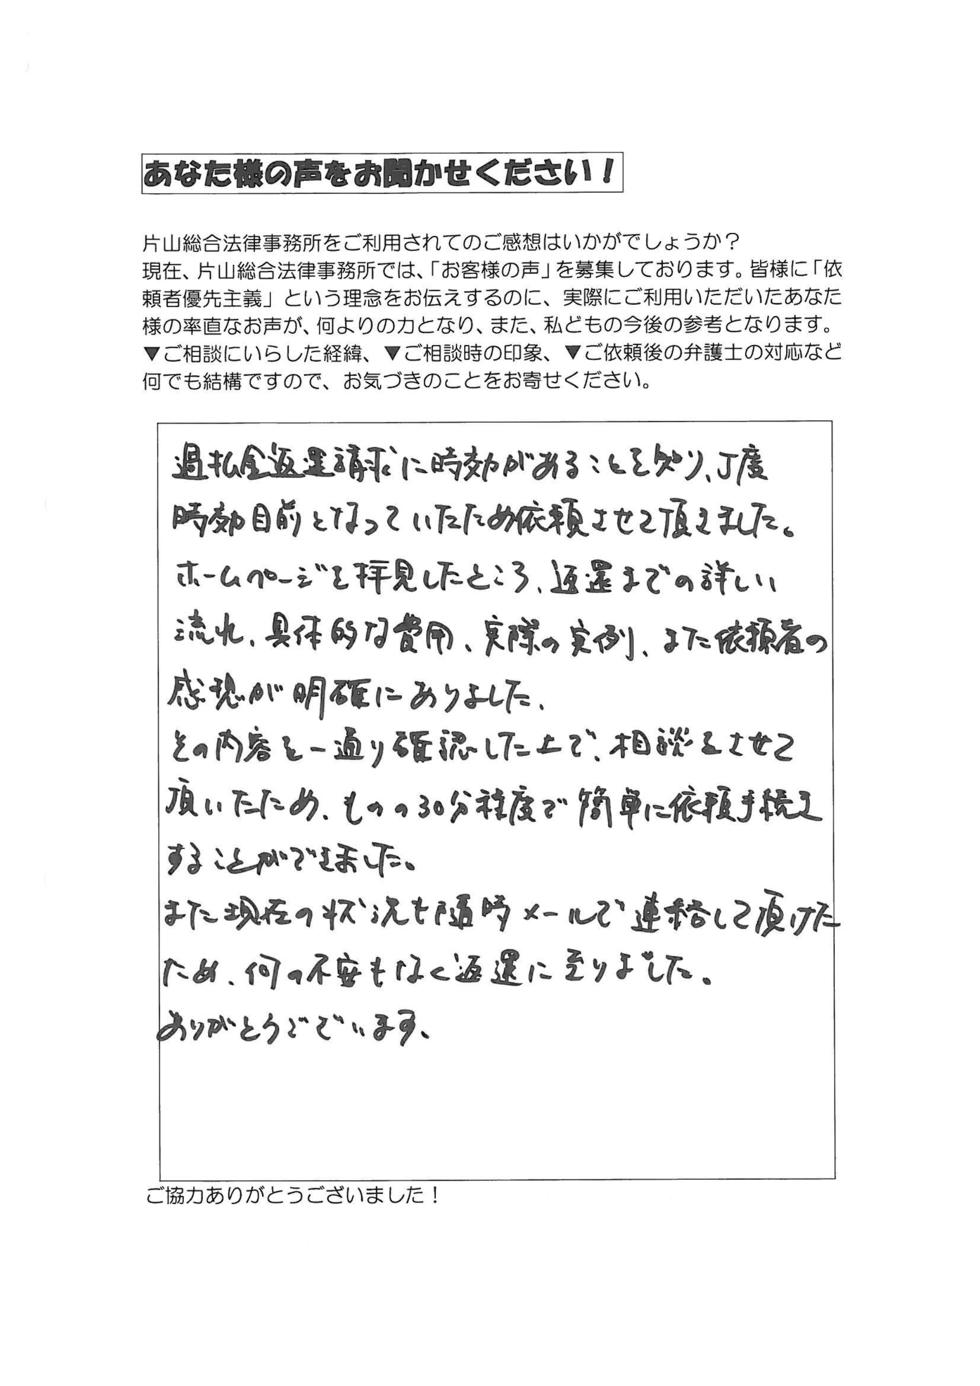 あなた様の声をお聞かせください！
片山総合法律事務所をご利用されてのご感想はいかがでしょうか？
現在、片山総合法律事務所では、「お客様の声」を募集しております。皆様に「依
頼者優先主義」という理念をお伝えするのに、実際にご利用いただいたあなた
様の率直なお声が、何よりの力となり、また、私どもの今後の参考となります。
▼ご相談にいらした経緯、▼ご相談時の印象、▼ご依頼後の弁護士の対応など
何でも結構ですので、お気づきのことをお寄せください。
過払金返還請求に時効があることを知り、丁度
時効目前となっていたため依頼させて頂きました。
ホームページを拝見したところ、返還までの詳しい
流れ、具体的な費用、実際の実例、また依頼者の
感想が明確にありました。
その内容を一通り確認した上で、相談をさせて
頂いたため、ものの30分程度で簡単に依頼手続き
することができました。
また現在の状況も随時メールで連絡して頂けた
ため、何の不安もなく返還に至りました。
ありがとうございます。
ご協力ありがとうございました！